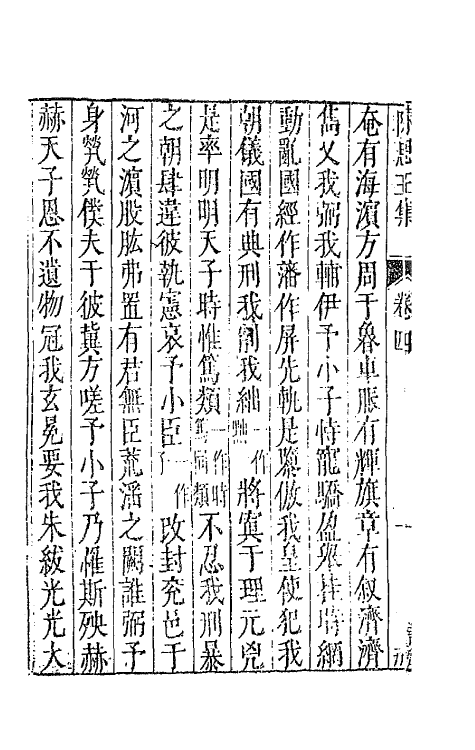 陳思王集 卷四
奄有海濱方周于魯車服有輝旗章有叙濟濟
儁乂我弼我輔伊予小子恃寵驕盈舉挂時網
動亂國經作藩作屏先軌是隳傲我皇使犯我
朝儀國有典刑我削我絀一作黜將寘于理元兇
是率明明天子時惟篤類一作時篤同類不忍我刑暴
之朝肆違彼執憲哀予小臣一作子改封兖邑于
河之濱股肱弗置有君無臣荒淫之闕誰弼予
身煢煢僕夫于彼冀方嗟予小子乃罹斯殃赫
赫天子恩不遺物冠我玄冕要我朱紱光光大